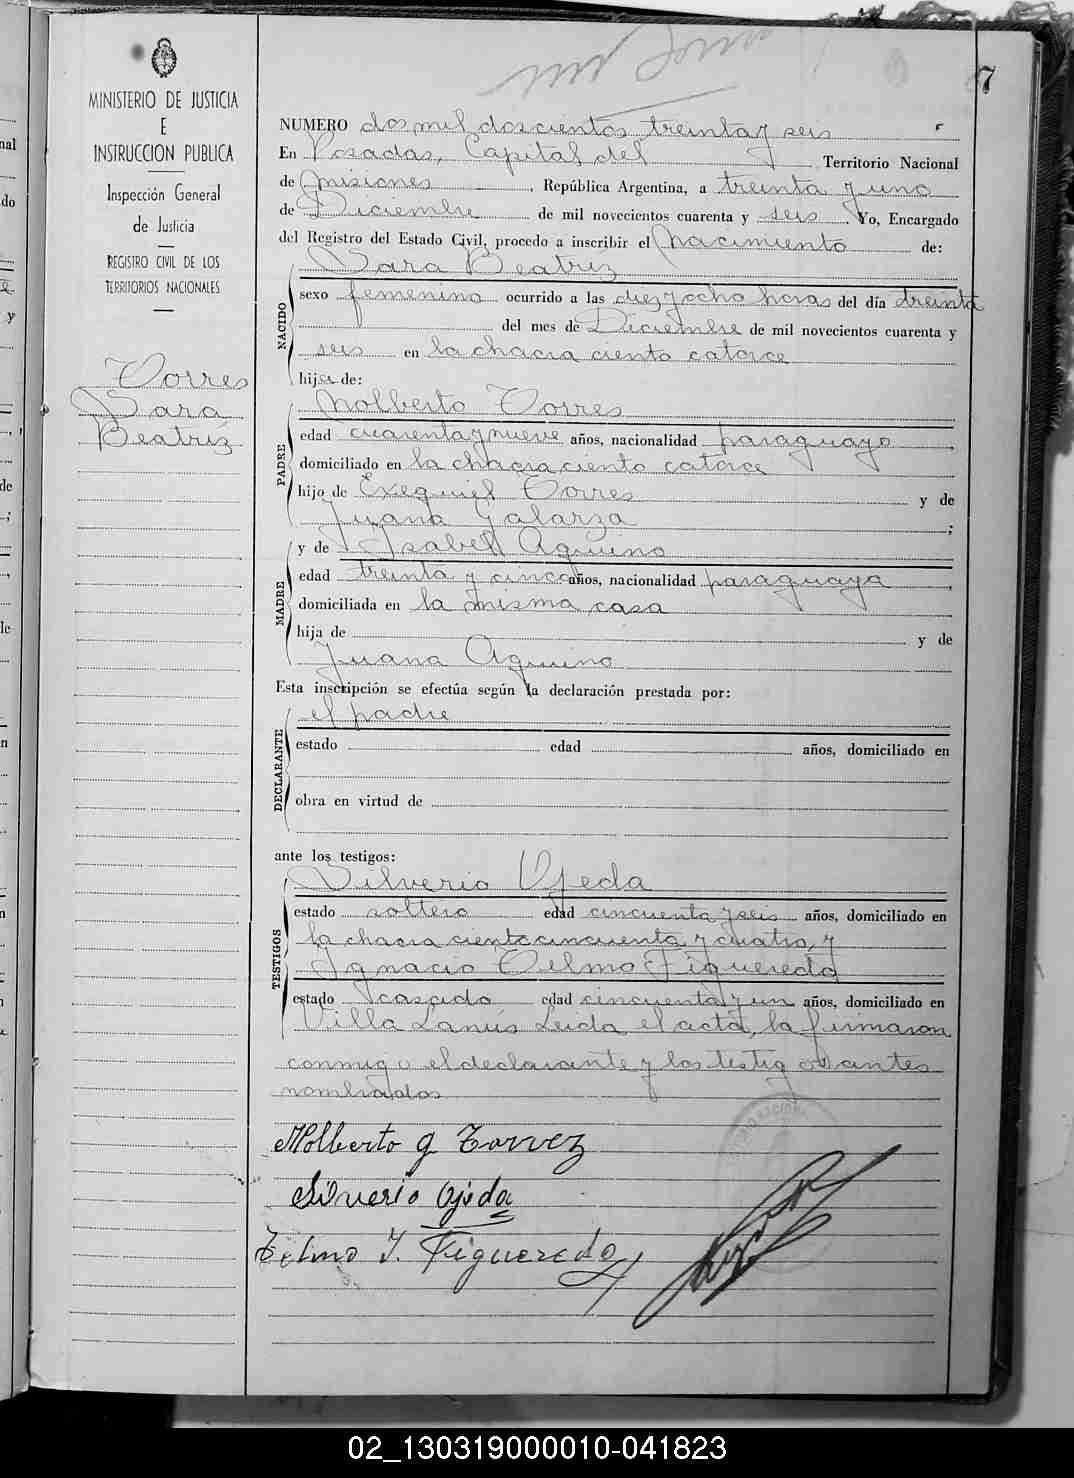 7
MINISTERIO DE JUSTICIA
E
INSTRUCCION PUBLICA
Inspección General
de Justicia
REGISTRO CIVIL DE LOS
TERRITORIOS NACIONALES
Torres
Sara
Beatríz
NUMERO dos mil doscientos treinta y seis
En Posadas, Capital del Territorio Nacional
de Misiones, República Argentina, a treinta y uno
de Diciembre de mil novecientos cuarenta y seis Yo, Encargado
del Registro del Estado Civil, procedo a inscribir el nacimiento de:
Sara Beatriz
NACIDO
sexo femenino ocurrido a las diez y ocho horas del día treinta
del mes de Diciembre de mil novecientos cuarenta y
seis en la chacra ciento catorce
hija de:
Nolberto Torres
PADRE
edad cuarenta y nueve años, nacionalidad paraguayo
domiciliado en la chacra ciento catorce
hijo de Exequiel Torres y de
Juana Galarza;
y de Isabel Aquino
MADRE
edad treinta y cinco años, nacionalidad paraguaya,
domiciliada en la misma casa
hija de y de
Juana Aquino
Esta inscripción se efectúa según la declaración prestada por:
el padre
DECLARANTE
estado edad años, domiciliado en
obra en virtud de
ante los testigos:
Silverio Ojeda
TESTIGOS
estado soltero edad cincuenta y seis años, domiciliado en
la chacra ciento cincuenta y cuatro, y
Ignacio Telmo Figueredo
estado casado edad cincuenta y un años, domiciliado en
Villa Lanús Leida el acta, la firmaron
conmigo el declarante y los testigos antes
nombrados
Nolberto g Torrez
Silverio Ojeda
Telmo I. Figueredo
02_130319000010-041823